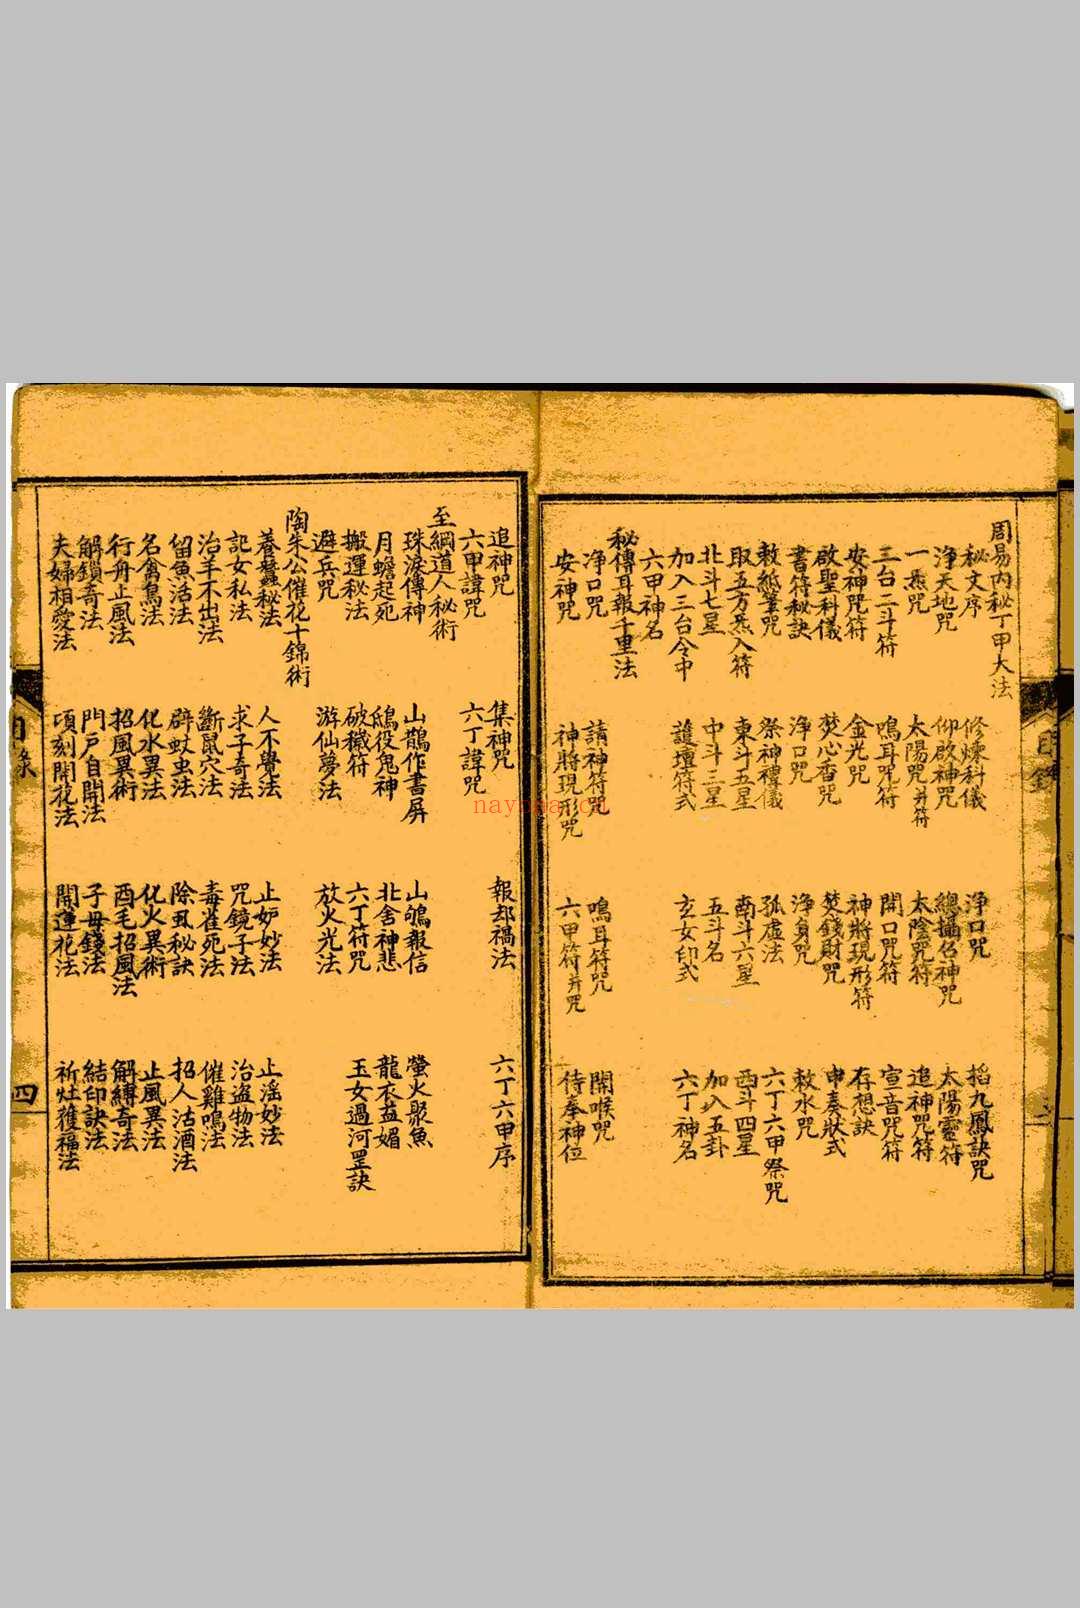 周易內秘丁甲大法
秘文序 修煉科儀 淨口咒 掐九鳳訣咒
淨天地咒 仰啟神咒 總攝召神咒 太陽靈符
一炁咒 太陽咒并符 太陰咒符 追神咒符
三台二斗符 鳴耳咒符 開口咒符 宣音咒符
安神咒符 金光咒 神將現形符 存想訣
啟聖科儀 焚心香咒 焚錢財咒 申奏狀式
書符秘訣 淨口咒 淨身咒 敕水咒
敕紙筆咒 祭神禮儀 孤虛法 六丁六甲祭咒
取五方炁入符 東斗五星 南斗六星 西斗四星
北斗七星 中斗三星 五斗名 加入五卦
加入三台令中 護壇符式 玄女印式 六丁神名
六甲神名
秘傳耳報千里法
淨口咒 請神符咒 鳴耳符咒 開喉咒
安神咒 神將現形咒 六甲符并咒 侍奉神位
目錄
追神咒 集神咒 報却禍法 六丁六甲序
六甲諱咒 六丁諱咒
至綱道人秘術
珠淚傳神 山鵲作書屏 山鴝報信 螢火聚魚
月蟾起死 鴆役鬼神 北舍神悲 龍衣益媚
搬運秘法 破穢符 六丁符咒 玉女過河罡訣
避兵咒 游仙夢法 放火光法
陶朱公催花十錦術
養蠶秘法 人不覺法 止妒妙法 止淫妙法
記女私法 求子奇法 咒鏡子法 治盜物法
治羊不出法 斷鼠穴法 毒雀死法 催雞鳴法
留魚活法 辟蚊虫法 除虱秘訣 招人沽酒法
名禽鳥法 化水異法 化火異術 止風異法
行舟止風法 招風異術 酉毛招風法 解縛奇法
解鎖奇法 門戶自開法 子母錢法 結印訣法
夫婦相愛法 頃刻開花法 開蓮花法 祈灶獲福法
目錄
四